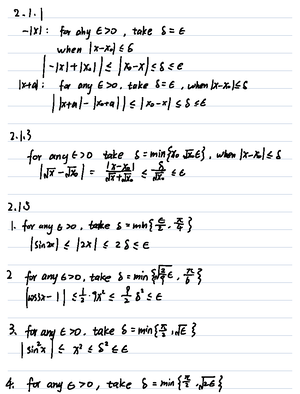 2.1.1
-|x|: for any ε>0, take δ=ε
when |x-x₀|≤δ
|-|x|+|x₀|| ≤ |x₀-x| ≤ δ ≤ ε
|x+a|: for any ε>0, take δ=ε, when |x-x₀|≤δ
||x+a|-|x₀+a|| ≤ |x₀-x| ≤ δ ≤ ε
2.1.3
for any ε>0 take δ=min{x₀, √x₀ε}, when |x-x₀|≤δ
|√x-√x₀| = |x-x₀|/(√x+√x₀) ≤ δ/√x₀ ≤ ε
2.1.5
1. for any ε>0, take δ=min{ε/2, π/4}
|sin2x| ≤ |2x| ≤ 2δ ≤ ε
2 for any ε>0, take δ=min{√(2/9)ε, π/6}
|cos3x-1| ≤ 1/2·9x² ≤ 9/2 δ² ≤ ε
3. for any ε>0, take δ=min{π/2, √ε}
|sin²x| ≤ x² ≤ δ² ≤ ε
4. for any ε>0, take δ=min{π/2, √2ε}